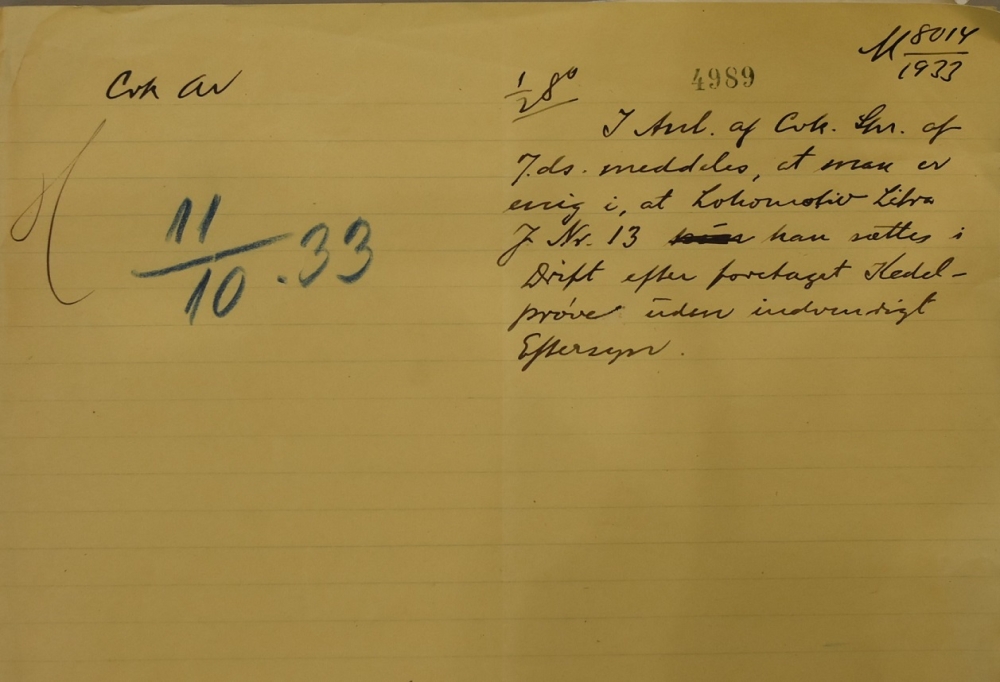 M 8014
1933
Cvk Av
1/2 8°
4989
I Anl. af Cvk. Skr. af
7.ds. meddeles, at man er
enig i, at Lokomotiv Litra
J Nr. 13 kan sættes i
Drift efter foretaget Kedel-
prøve uden indvendigt
Eftersyn.
11/10.33